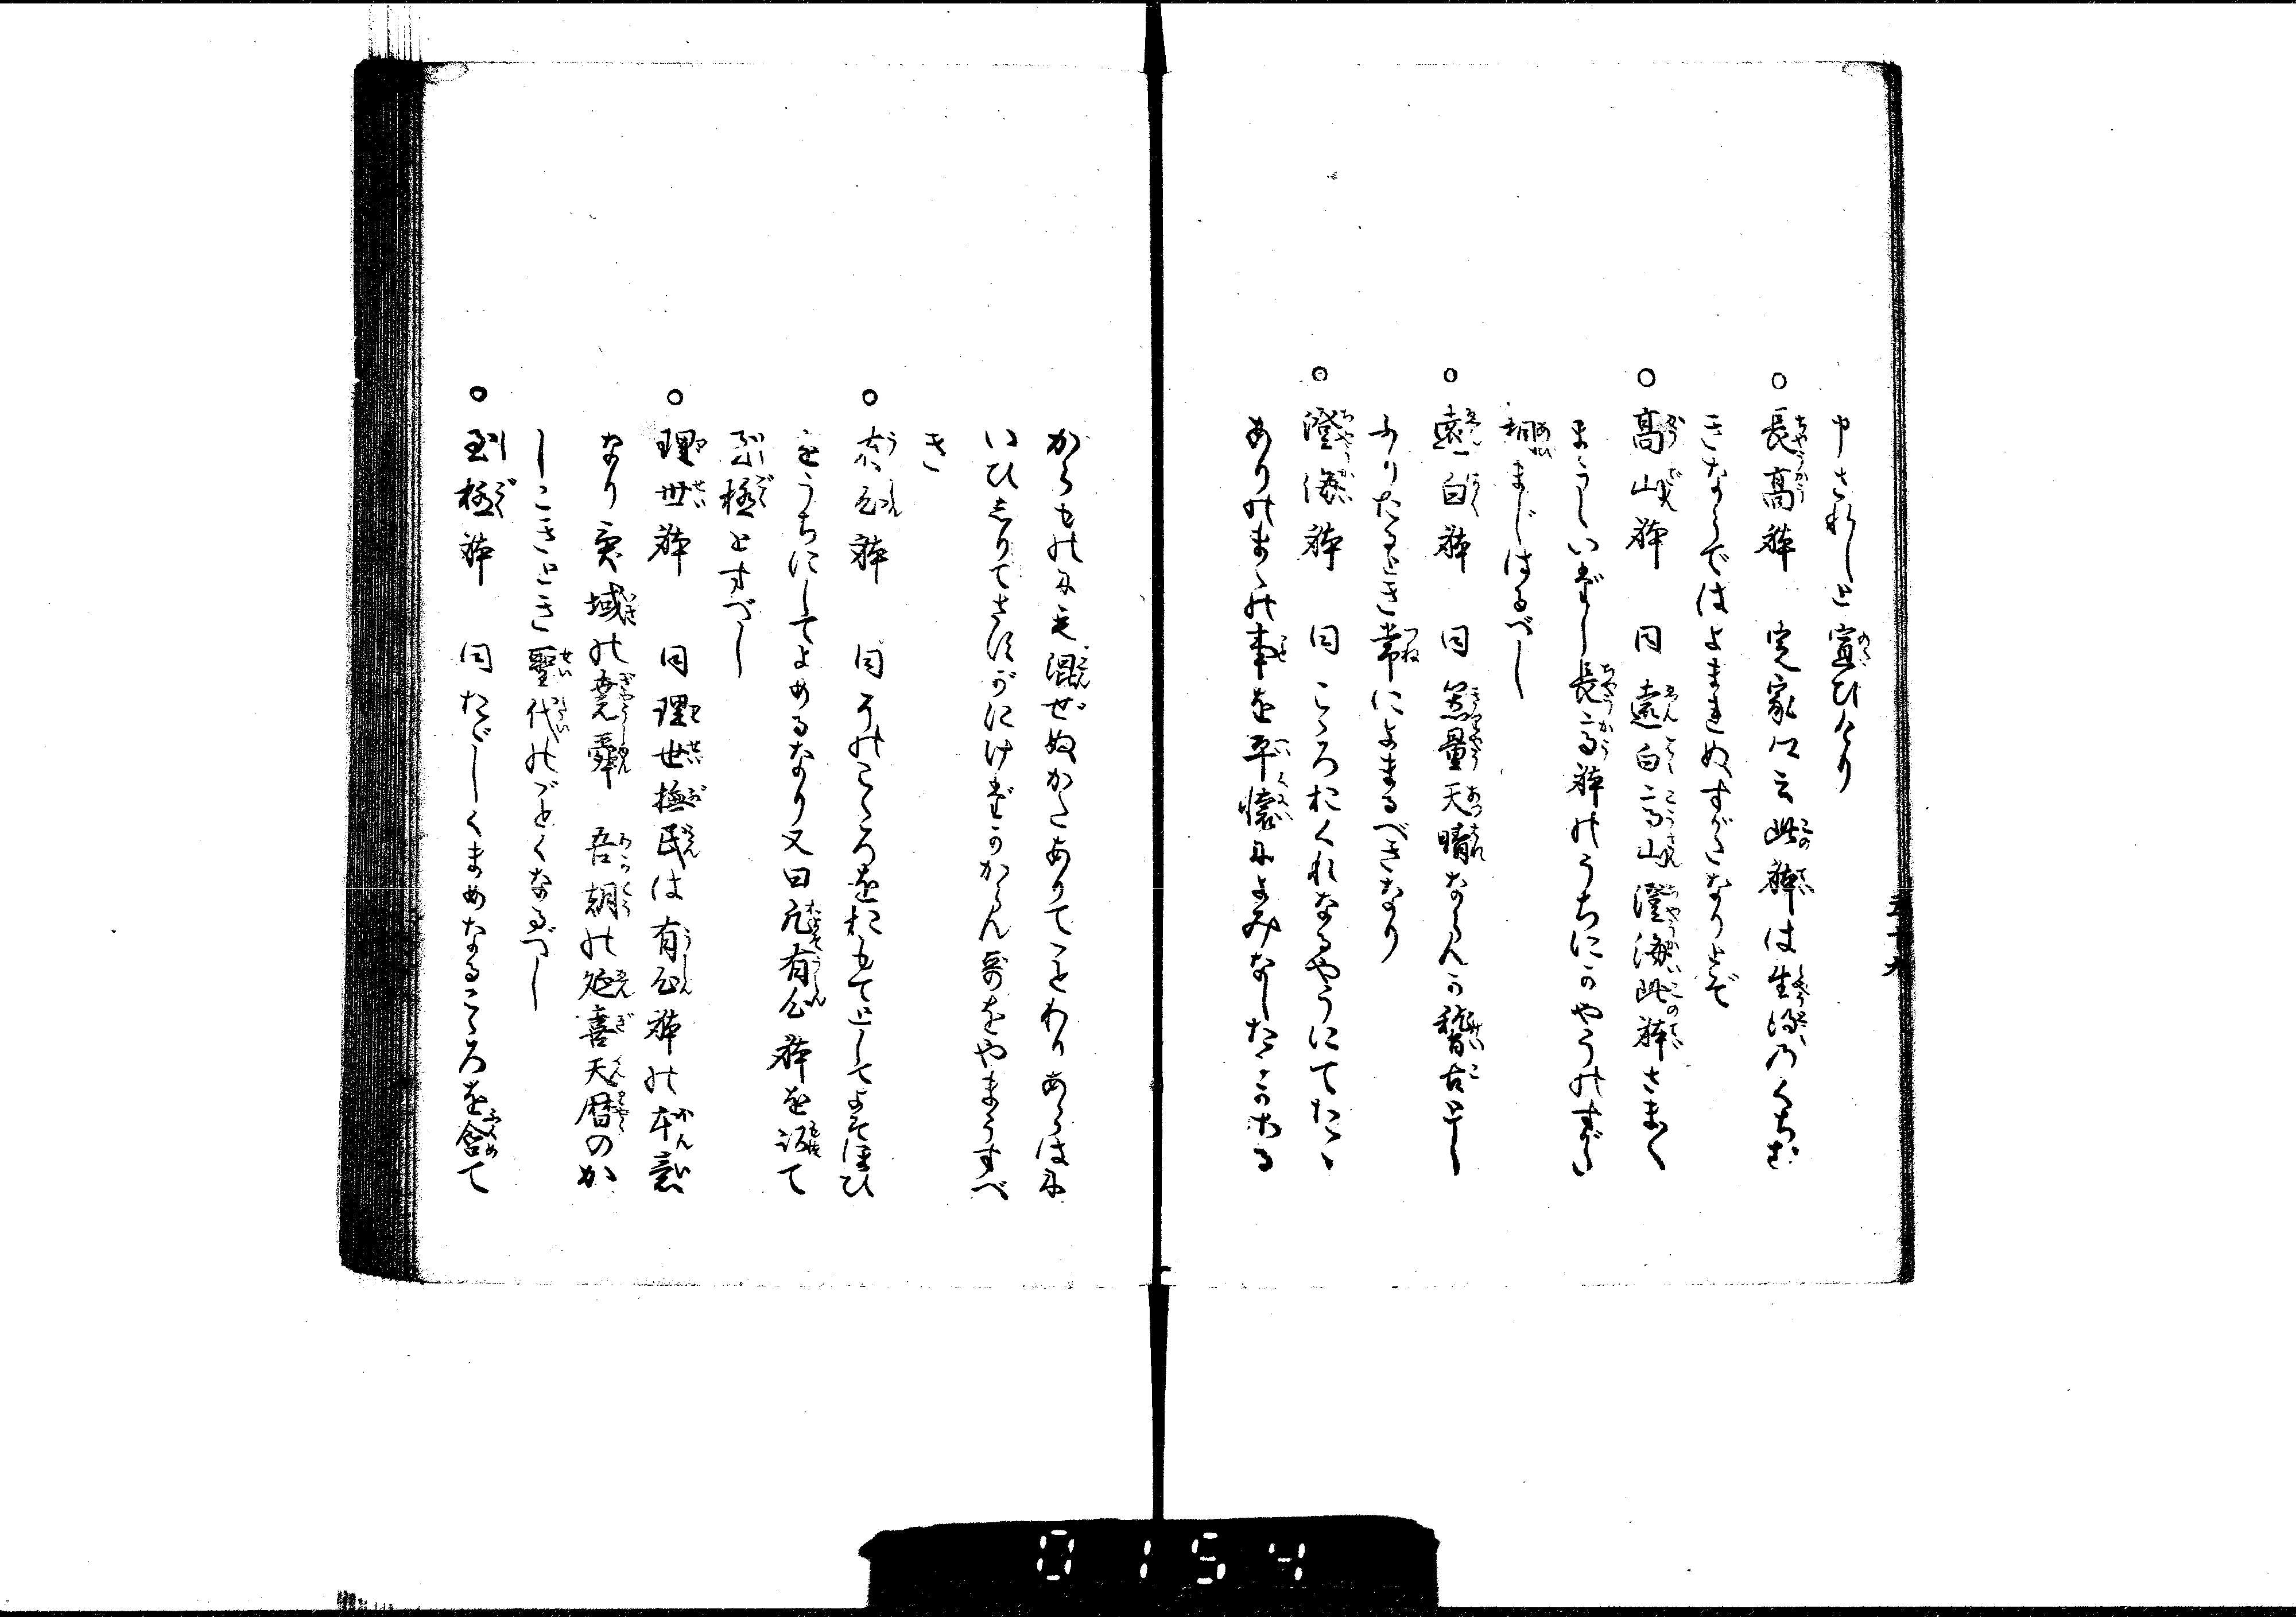 申されしと宣ひけり
○長高躰　定家仁云此躰は生得乃くちむ
きならではよまれぬすがたなりとぞ
○高山躰　同　遠白高山澄海此躰さまく
まうしいだし長高躰のうちにのやうのすがた
相まじはるべし
○遠白躰　同　器量天晴ならんの稽古とし
ふりたるとき常によまるべきなり
○澄海躰　同　こゝろおくれなるやうにてたゝ
ありのまゝの事を平懐によみなしたゝのある
五十九
からものに毛混ぜぬかたありてことわりあらはに
いひふりてさすがにけだかからん哥をやまうすべ
き
○有心躰　同　そのこゝろをおもてとしてよそほひ
をうちにしてよめるなり又曰凡有心躰を詠て
至極とすべし
○理世躰　同　理世撫民は有心躰の本意
なり異域の堯舜　吾朝の延喜天暦のか
しこきとき聖代のごとくなるべし
○至極躰　同　たゞしくまめなるこゝろを含て
0154